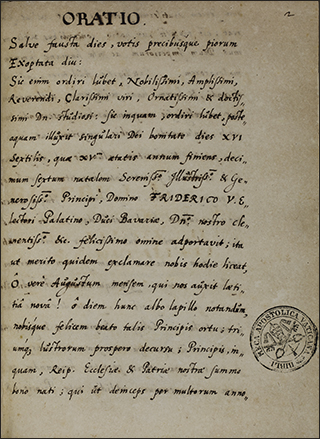 ORATIO.
2
Salve fausta dies, votis precibusque piorum
Exoptata diu:
Sic enim ordiri lubet, Nobilissimi, Amplissimi,
Reverendi, Clarissimi viri, Ornatissimi & doctis-
simi Dn. Studiosi: sic inquam, ordiri lubet, post-
aquam illuxit singulari Dei bonitate dies XVI
Sextilis, quae XV. aetatis annum finiens, deci-
mum sextum natalem Sereniss. Illustriss. & Ge-
nerosiss. Principi, Domino FRIDERICO V. E-
lectori Palatino, Duci Bavariae, Dn. nostro cle-
mentiss. &c. felicissimo omine adportavit; ita
ut merito quidem exclamare nobis hodie liceat,
O vere Augustum mensem, qui nos auxit laeti-
tia nova! ô diem hunc albo lapillo notandum,
nobisque felicem beato talis Principis ortu; tri-
um, lustrorum prospero decursu; Principis, in-
quam, Reip. Ecclesiae & Patriae nostrae summo
bono nati; qui ut deinceps per multorum anno-
BIBLIOTECA APOSTOLICA VATICANA